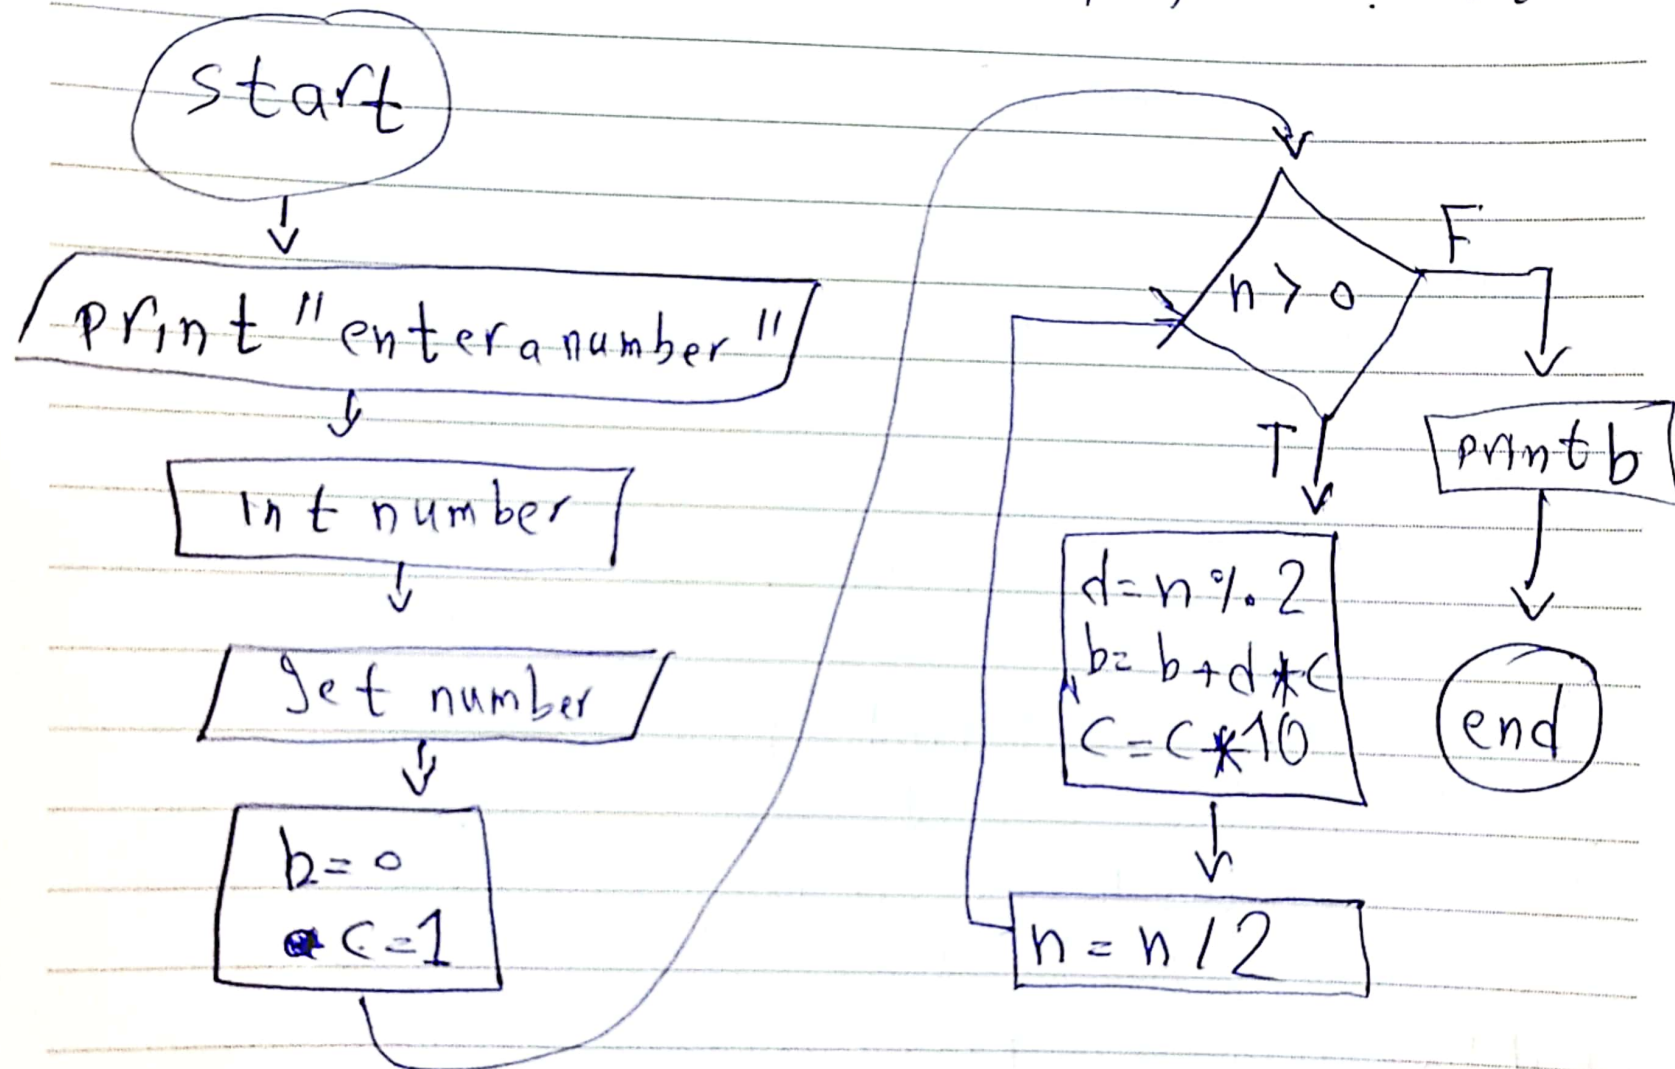 start
print "enter a number"
int number
get number
b=0
c=1
n>0
F
T
print b
d=n%2
b=b+d*c
c=c*10
n=n/2
end